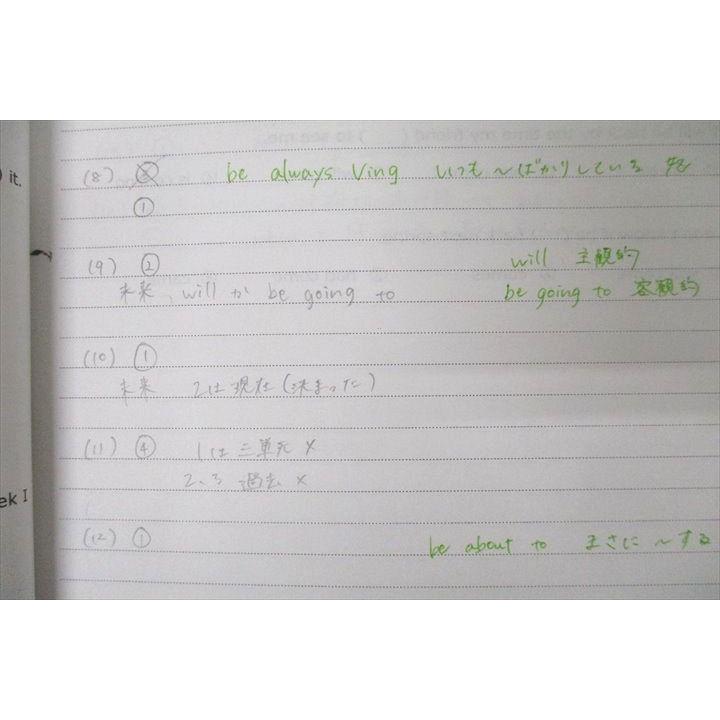 it.
(8) ② be always Ving いつも〜ばかりしている
①
(9) ② will 主観的
未来、will か be going to be going to 客観的
(10) ①
未来 2は現在(決まった)
(11) ④ 1は三単元 ×
2、3 過去 ×
ek I
(12) ① be about to まさに〜する